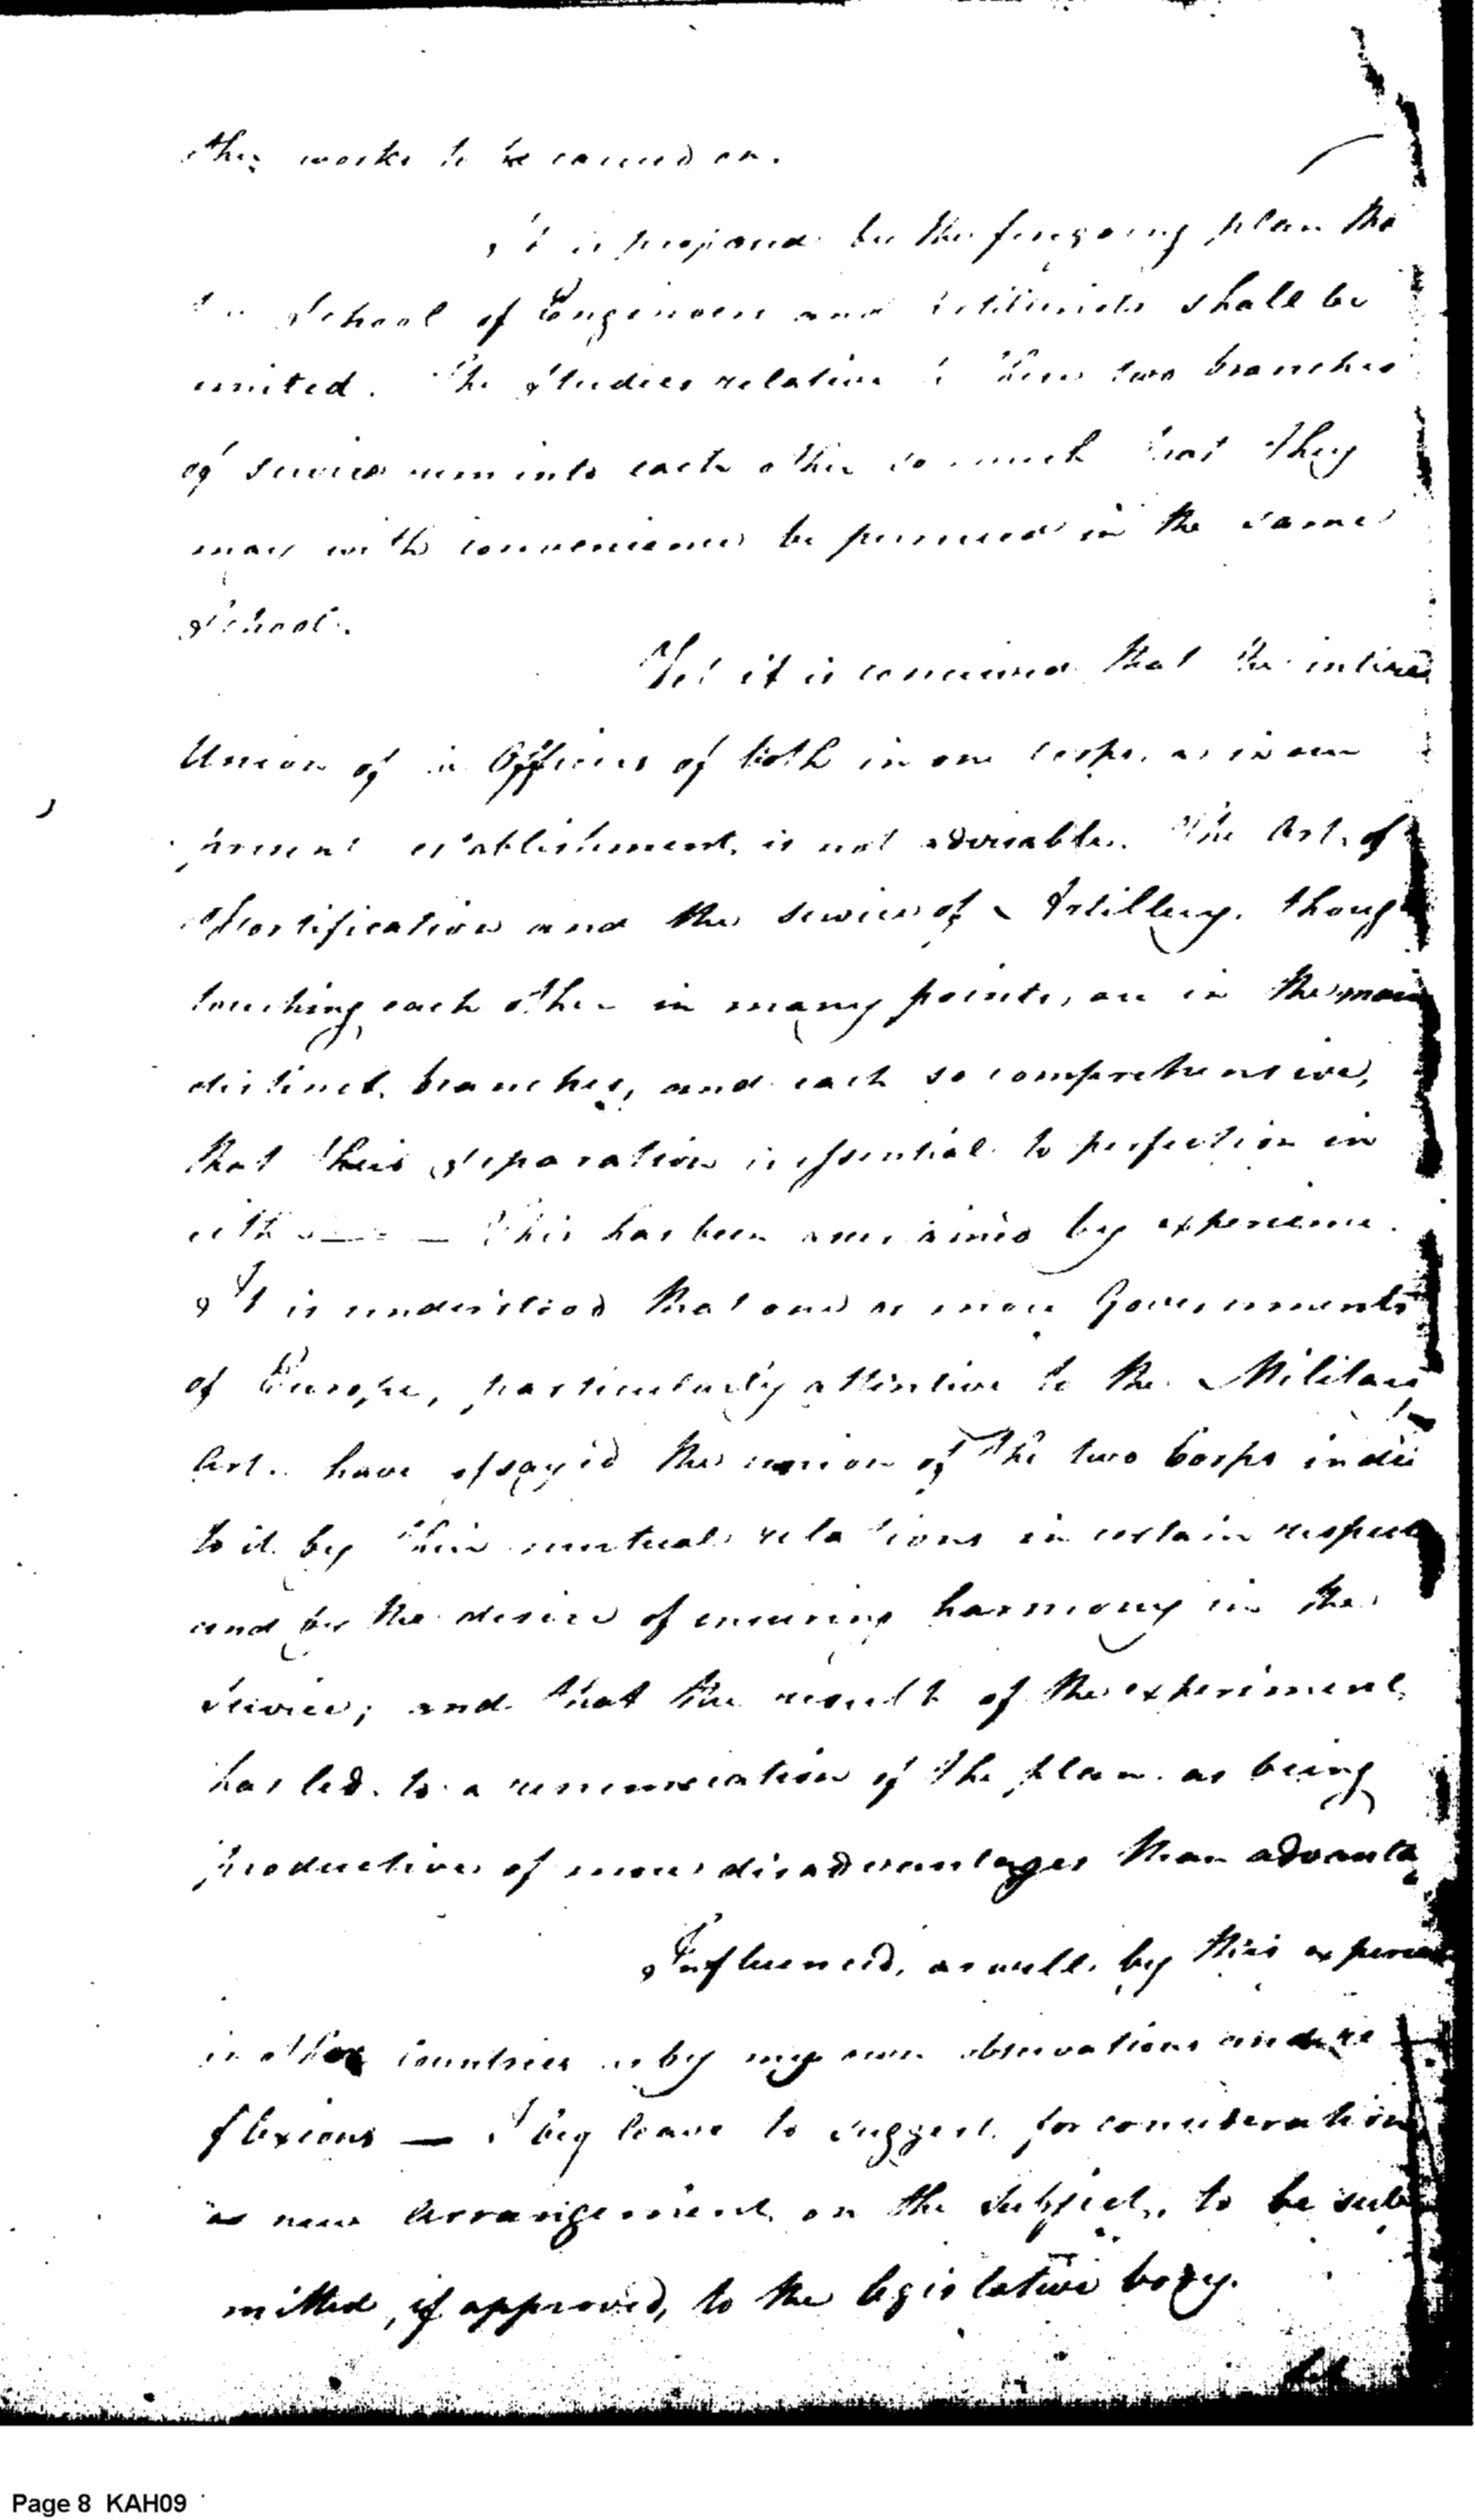 the works to be carried on.
It is proposed by the foregoing plan tha
the School of Engineers and Artillerists shall be
united. The Studies relative to these two branches
of service run into each other so much that they
may with convenience be pursued in the same
School.
Yet it is conceived that the intire
Union of the Officers of both in one corps, as in our
present establishment, is not adviseable. The Art of
Fortification and the service of Artillery, though
touching each other in many points, are in the main
distinct branches, and each so comprehensive,
that their separation is essential to perfection in
either — This has been ascertained by experience.
It is understood that one or more Governments
of Europe, particularly attentive to the Military
Art have essayed the union of the two Corps
to it by their mutual relations in certain respects
and by the desire of ensuring harmony in the
service; and that the result of the experiment
has led to a renunciation of the plan as being
productive of more disadvantages than advanta
Influenced, as well by this experience
in other countries as by my own observations and re
flexions — I beg leave to suggest for consideration
a new arrangement on the subject, to be sub
mitted, if approved, to the legislative body.
Page 8 KAH09